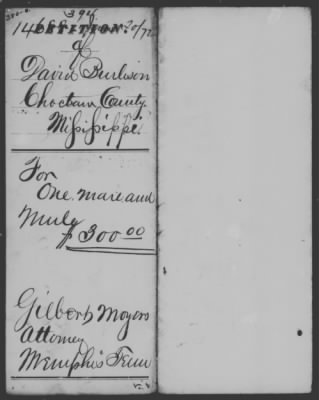 PETITION.
of
David Burlison
Choctaw County.
Mississippi
For
One mare and
Mule
$300 00
Gilbert Moyers
Attorney
Memphis Tenn